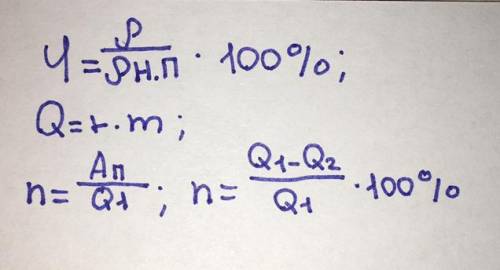 φ = ρ / ρн.п · 100%;
Q = r · m;
η = Aп / Q1; η = Q1 - Q2 / Q1 · 100%